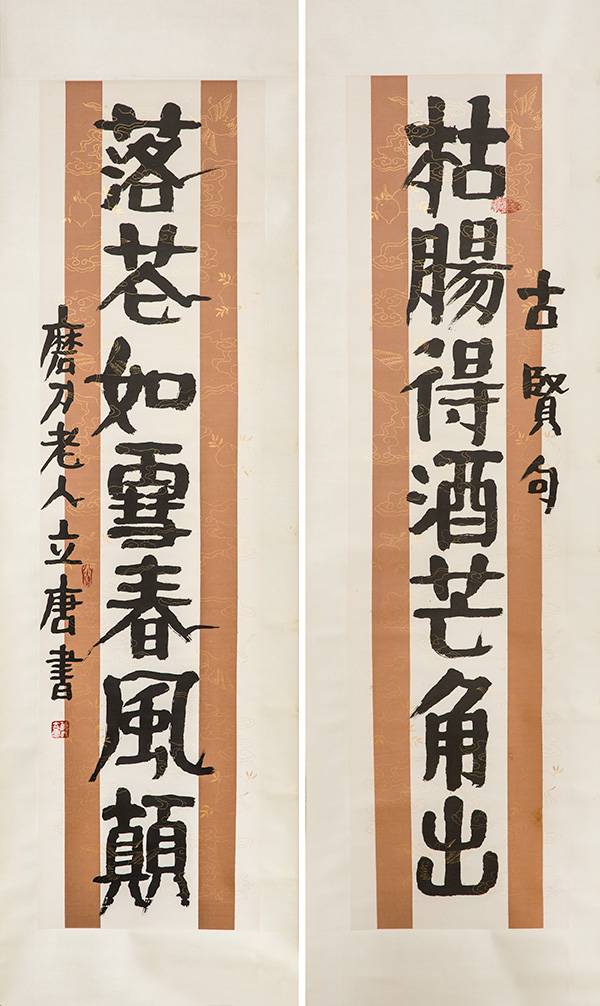 古賢句
枯腸得酒芒角出
落花如雪春風顛
磨刀老人立唐書